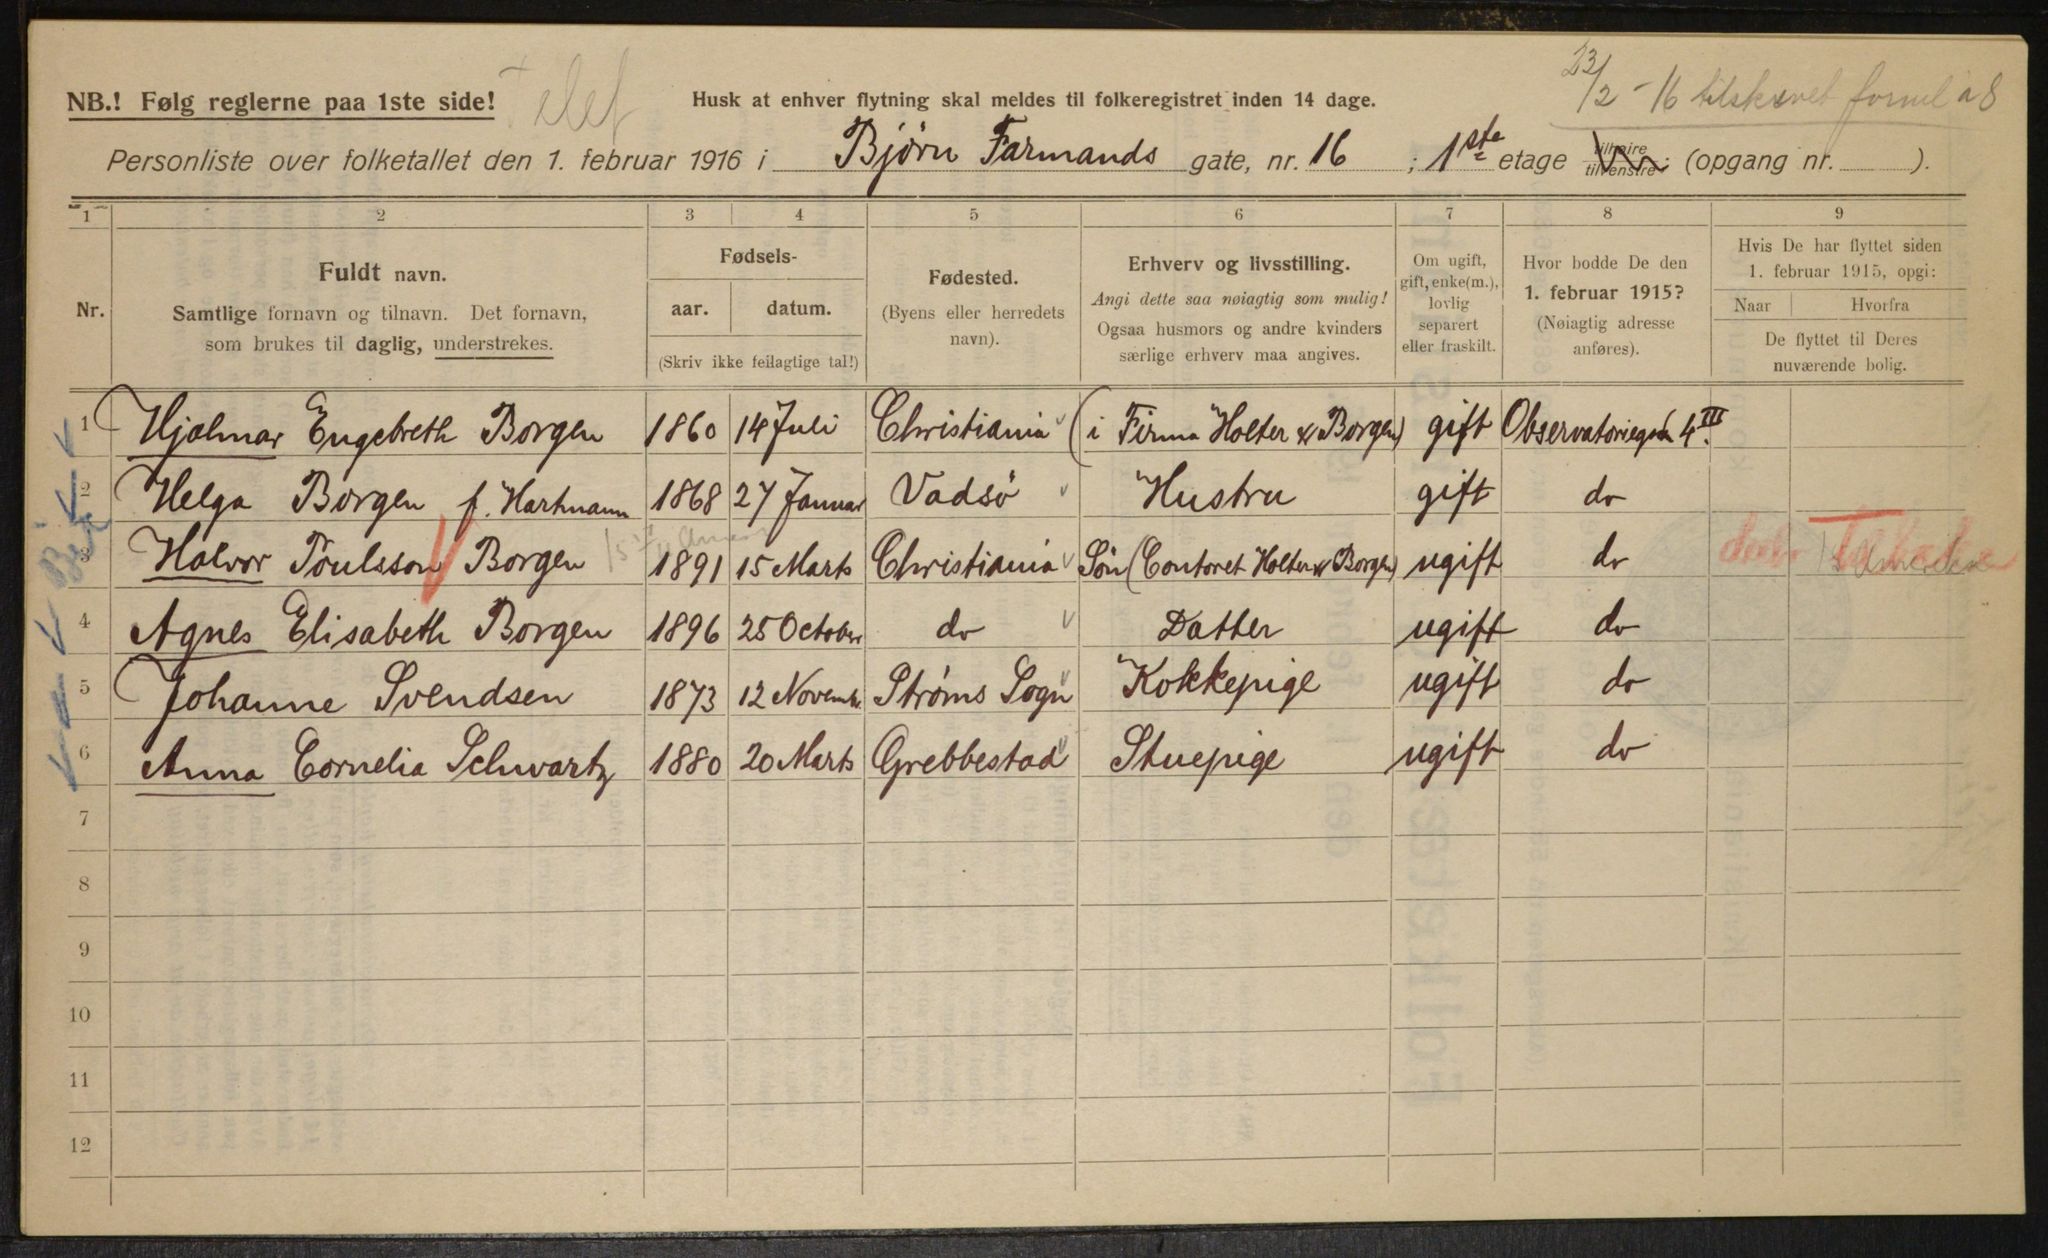 23/2 - 16 tilskrevet
NB.! Følg reglerne paa 1ste side! Husk at enhver flytning skal meldes til folkeregistret inden 14 dage.
Personliste over folketallet den 1. februar 1916 i Bjørn Farmands gate, nr. 16 ; 1ste etage tilhøire tilvenstre: (opgang nr. ).
1 2 3 4 5 6 7 8 9
Nr.
Fuldt navn.
Samtlige fornavn og tilnavn. Det fornavn,
som brukes til daglig, understrekes.
Fødsels-
aar. datum.
(Skriv ikke feilagtige tal!)
Fødested.
(Byens eller herredets
navn).
Erhverv og livsstilling.
Angi dette saa nøiagtig som mulig!
Ogsaa husmors og andre kvinders
særlige erhverv maa angives.
Om ugift,
gift, enke(m.),
lovlig
separert
eller fraskilt.
Hvor bodde De den
1. februar 1915?
(Nøiagtig adresse
anføres).
Hvis De har flyttet siden
1. februar 1915, opgi:
Naar Hvorfra
De flyttet til Deres
nuværende bolig.
1 Hjalmar Engebreth Borgen 1860 14 Juli Christiania (i Firma Holter & Borgen) gift Observatoriegaden 4 III.
2 Helga Borgen f. Hartmann 1868 27 Januar Vadsö Hustru gift do
3 Halvor Poulsson Borgen 1891 15 Marts Christiania Sön (Contoret Holter & Borgen) ugift do
4 Agnes Elisabeth Borgen 1896 25 October do Datter ugift do
5 Johanne Svendsen 1873 12 Novembr. Strøms Sogn Kokkepige ugift do
6 Anna Cornelia Schwartz 1880 20 Marts Grebbestad Stuepige ugift do
7
8
9
10
11
12